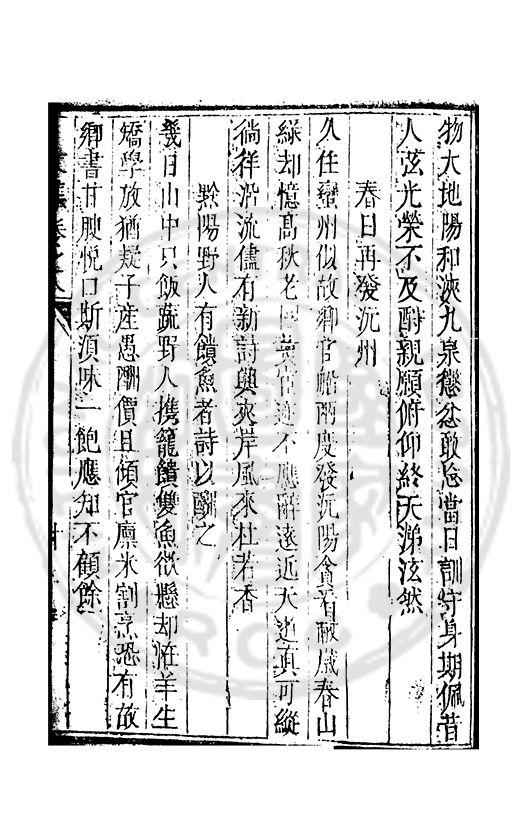 物大地陽和浹九泉愆忿敢忘當日訓守身期佩昔
人弦光榮不及酧親願俯仰終天涕泫然
春日再發沅州
久任蠻州似故鄉官船兩度發沅陽貪看 嵗春山
綠却憶髙秋老 黄官 不應辭逺近天 真可縱
徜徉沿流儘有新詩興夾岸風來杜若香
黔陽野人有饋魚者詩以酧之
幾日山中只飯蔬野人携籠饋雙魚欲懸却怪羊生
矯學放猶疑子産愚酧價且傾官廪米割烹恐有故
鄉書甘腴悦口斯須味一飽應知不顧餘